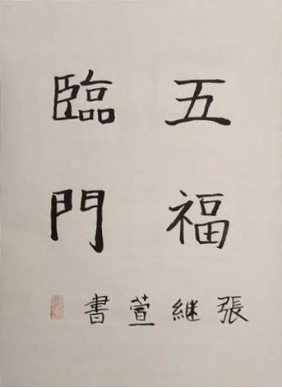 五福
臨門
張継萱書